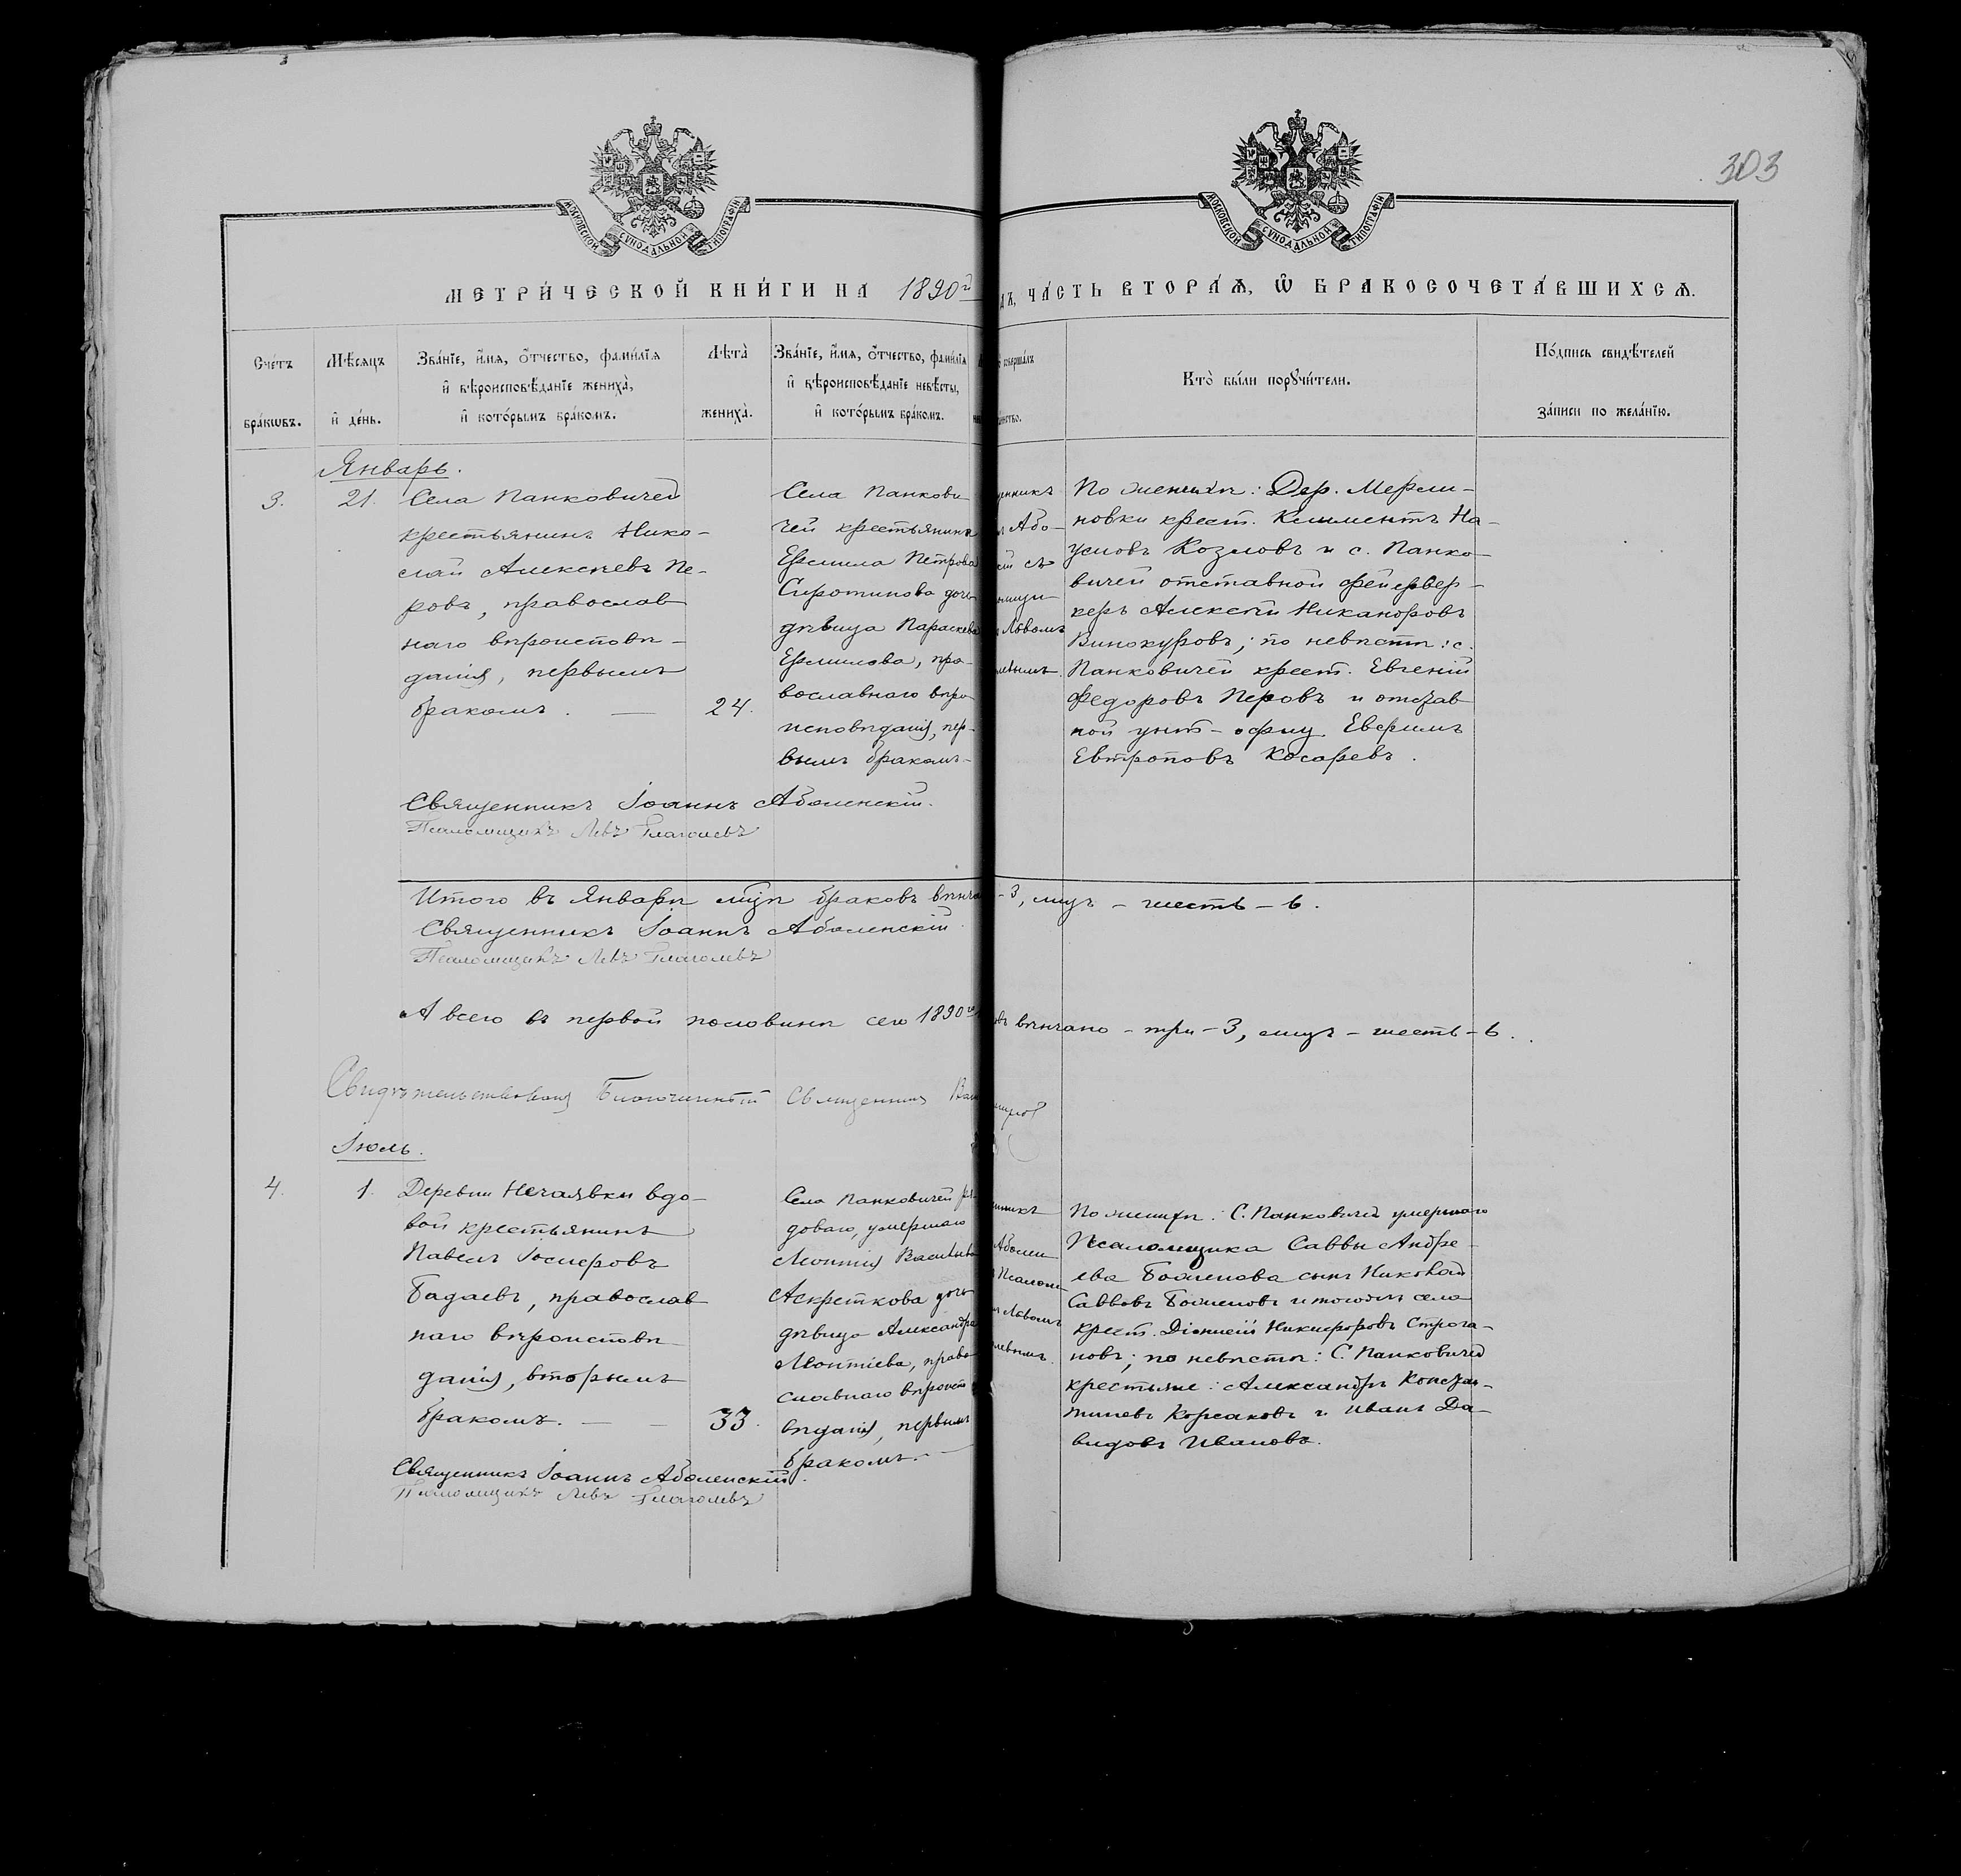 303
МОСКОВСКОЙ СѴНОДАЛЬНОЙ ТИПОГРАФІИ
МОСКОВСКОЙ СѴНОДАЛЬНОЙ ТИПОГРАФІИ
МЕТРИ́ЧЕСКОЙ КНИ́ГИ НА 1890й
ЧА́СТЬ ВТОРА́Ѧ, Ѽ БРАКОСОЧЕТА́ВШИХСѦ.
Сче́тъ бра́кѡвъ.
Мѣ́сяцъ и҆ де́нь.
Зва́нїе, и҆́мѧ, ѻ҆́тчество, фами́лїѧ
и҆ вѣроисповѣ́данїе жениха̀,
и҆ кото́рымъ бра́комъ.
Лѣ́та̀ жениха̀.
Зва́нїе, и҆́мѧ, ѻ҆́тчество, фами́лїѧ
и҆ вѣроисповѣ́данїе невѣ́сты,
и҆ кото́рымъ бра́комъ.
Кто̀ бы́ли порꙋчи́тели.
По́дпись свидѣ́телей
за́писи по жела́нїю.
Январь.
3.
21.
Села Панковичей
крестьянинъ Нико-
лай Алексѣевъ Пе-
ровъ, православ
наго вѣроисповѣ-
данія, первымъ
бракомъ. —
24.
Села Панкови
чей крестьянина
Ермила Петрова
Сиротинова дочь
дѣвица Параскева
Ермилова, пра-
вославнаго вѣро
исповѣданія, пер-
вымъ бракомъ-
По женихѣ: Дер. Мерли-
новки крест. Климентъ На-
умовъ Козловъ и с. Панко-
вичей отставной фейервер-
керъ Алексѣй Никаноровъ
Винокуровъ; по невѣстѣ: с.
Панковичей крест. Евгеній
Федоровъ Перовъ и отстав
ной унт-офиц. Евфимъ
Евтроповъ Косаревъ.
Священникъ Іоаннъ Аболенскій.
Псаломщикъ Левъ Глаголевъ
Итого въ Январѣ мцѣ браковъ вѣнча -3, лицъ - шесть - 6.
Священникъ Іоаннъ Аболенскій
Псаломщикъ Левъ Глаголевъ
А всего въ первой половинѣ сего 1890го
вѣнчано - три - 3, лицъ - шесть - 6.
Свидѣтельствовалъ Благочинный Священникъ
Іюль.
4.
1.
Деревни Нечаявки вдо-
вой крестьянинъ
Павелъ
Бадаевъ, православ
наго вѣроисповѣ
данія, вторымъ
бракомъ. — —
33.
Села Панковичей ря-
доваго, умершаго
Леонтія Васильева
Аскреткова дочь
дѣвица Александра
Леонтіева, право
славнаго вѣроиспо
вѣданія, первымъ
бракомъ. —
По женихѣ: С. Панковичей умершаго
Псаломщика Саввы Андре-
ева Боженова сынъ Николай
Саввовъ Боженовъ и тогожъ села
крест. Діонисій Никифоровъ Строга-
новъ; по невѣстѣ: С. Панковичей
крестьяне: Александръ Констан-
тиновъ Корсаковъ и Иванъ Да-
видовъ Ивановъ.
Священникъ Іоаннъ Аболенскій.
Псаломщикъ Левъ Глаголевъ